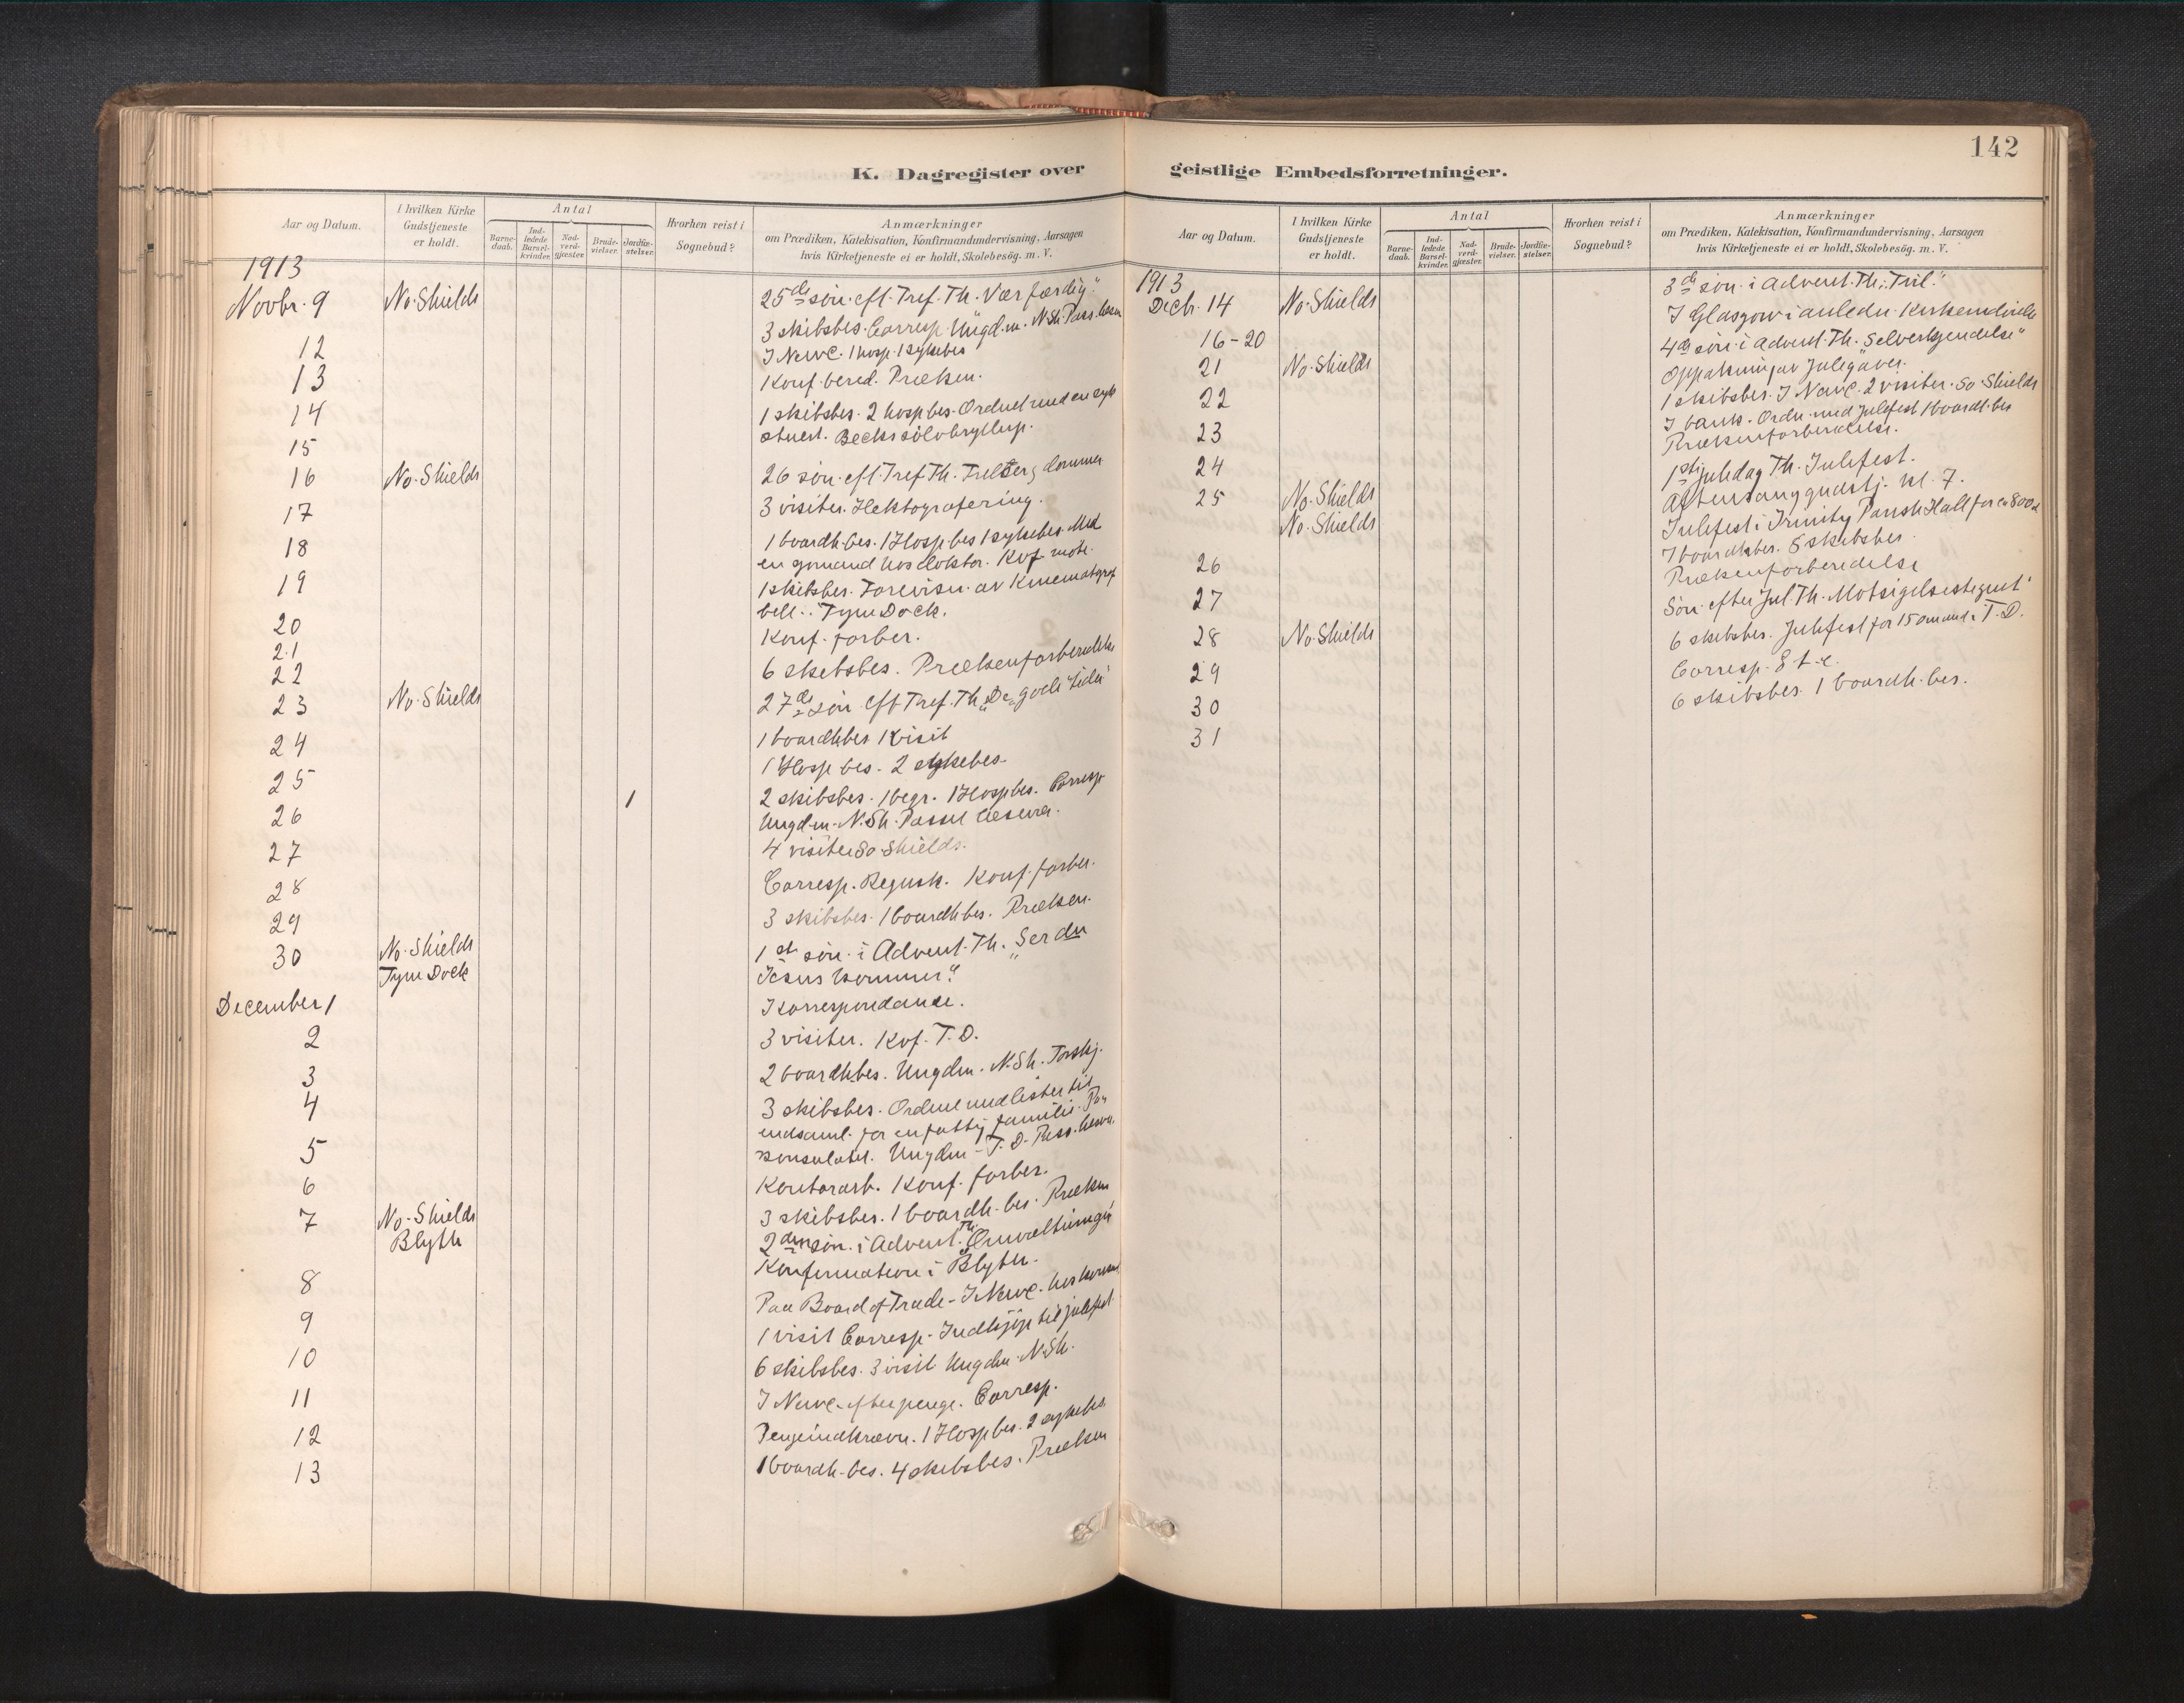 142
K. Dagregister over geistlige Embedsforretninger.
Aar og Datum.
I hvilken Kirke Gudstjeneste er holdt.
Antal
Barne-daab.
Ind-ledede Barsel-kvinder.
Nad-verd-gjæster.
Brude-vielser.
Jordfæ-stelser.
Hvorhen reist i Sognebud?
Anmærkninger
om Prædiken, Katekisation, Konfirmandundervisning, Aarsagen
hvis Kirketjeneste ei er holdt, Skolebesög. m. V.
1913
Novbr. 9 No. Shields 25de søn. eft. Tref. Th. "Vær færdig."
3 skibsbes. Corresp. Ungd.m. N.Sh. Pass.
12 I Newc. 1 hosp. 1 sykebes
13 Konf. bered. Præken.
14 1 skibsbes. 2 hosp bes. Ordnet med en syk
15 stuert. Becks sølvbryllup.
16 No. Shields 26 søn. eft. Tref. Th.
17 3 visiter. Hektografering.
18 1 boardh. bes. 1 Hosp bes 1 sykebes. Med
en gmand hos doktor. Kvf. møte.
19 1 skibsbes. Forevisn. av Kinematograf
bill. i Tyne Dock.
20 Konf. forber.
21
22 6 skibsbes. Prækenforberedelse
23 No. Shields 27de søn. eft. Tref. Th. "De gode tider"
24 1 boardh bes 1 visit
25 1 Hosp bes. 2 sykebes.
26 1 2 skibsbes. 1 begr. 1 Hosp bes. Corresp.
Ungd.m. N.Sh. Passul
27 4 visiter So. Shields.
28 Corresp. Regnsk. Konf. forber.
29 3 skibsbes. 1 boardh bes. Præken.
30 No. Shields 1ste søn. i Advent. Th. "Ser du
Tyne Dock Jesus kommer?"
December 1 Korrespondance.
2 3 visiter. Kvf. T. D.
3 2 boardh. bes. Ungdm. N.Sh.
4 3 skibsbes. Ordnet med lister til
indsaml. for en fattig familie. Paa
5 konsulatet. Ungdm. T. D. Pass.
6 Kontorarb. Konf. forber.
3 skibsbes. 1 boardh. bes. Præken
7 No. Shields 2den søn. i Advent. Th.
Blyth Konfirmation i Blyth.
8 Paa Board of Trade. I Newc.
9 1 visit Corresp. Indkjøp til julefest
10 6 skibsbes. 3 visit Ungdm. N.Sh.
11 I Newc. efter penge. Corresp.
12 Pengeindkræv. 1 Hosp bes. 2 sykebes.
13 1 boardh. bes. 4 skibsbes. Præken
Aar og Datum.
I hvilken Kirke Gudstjeneste er holdt.
Antal
Barne-daab.
Ind-ledede Barsel-kvinder.
Nad-verd-gjæster.
Brude-vielser.
Jordfæ-stelser.
Hvorhen reist i Sognebud?
Anmærkninger
om Prædiken, Katekisation, Konfirmandundervisning, Aarsagen
hvis Kirketjeneste ei er holdt, Skolebesög. m. V.
1913
Decbr. 14 No. Shields 3de søn. i Advent. Th.
16-20 I Glasgow i anledn.
21 No. Shields 4de søn. i Advent. Th. Selverkjendelse"
Oppakning av Julegaver.
22 1 skibsbes. I Newc. 2 visiter. So. Shields
23 I bank. Ordn. med julefest 1 boardh. bes
24 Prækenforberedelse.
25 No. Shields 1ste juledag Th. Julefest.
No. Shields Aftensanggudstj. kl. 7.
Julefest i Trinity Parish Hall for ca 800
26 7 boardh bes. 5 skibsbes.
27 Prækenforberedelse
28 No. Shields Søn. efter Jul Th. Motsigelsestegnet
29 6 skibsbes. Julefest for 150 mand i T. D.
30 Corresp. E t c.
31 6 skibsbes. 1 boardh. bes.